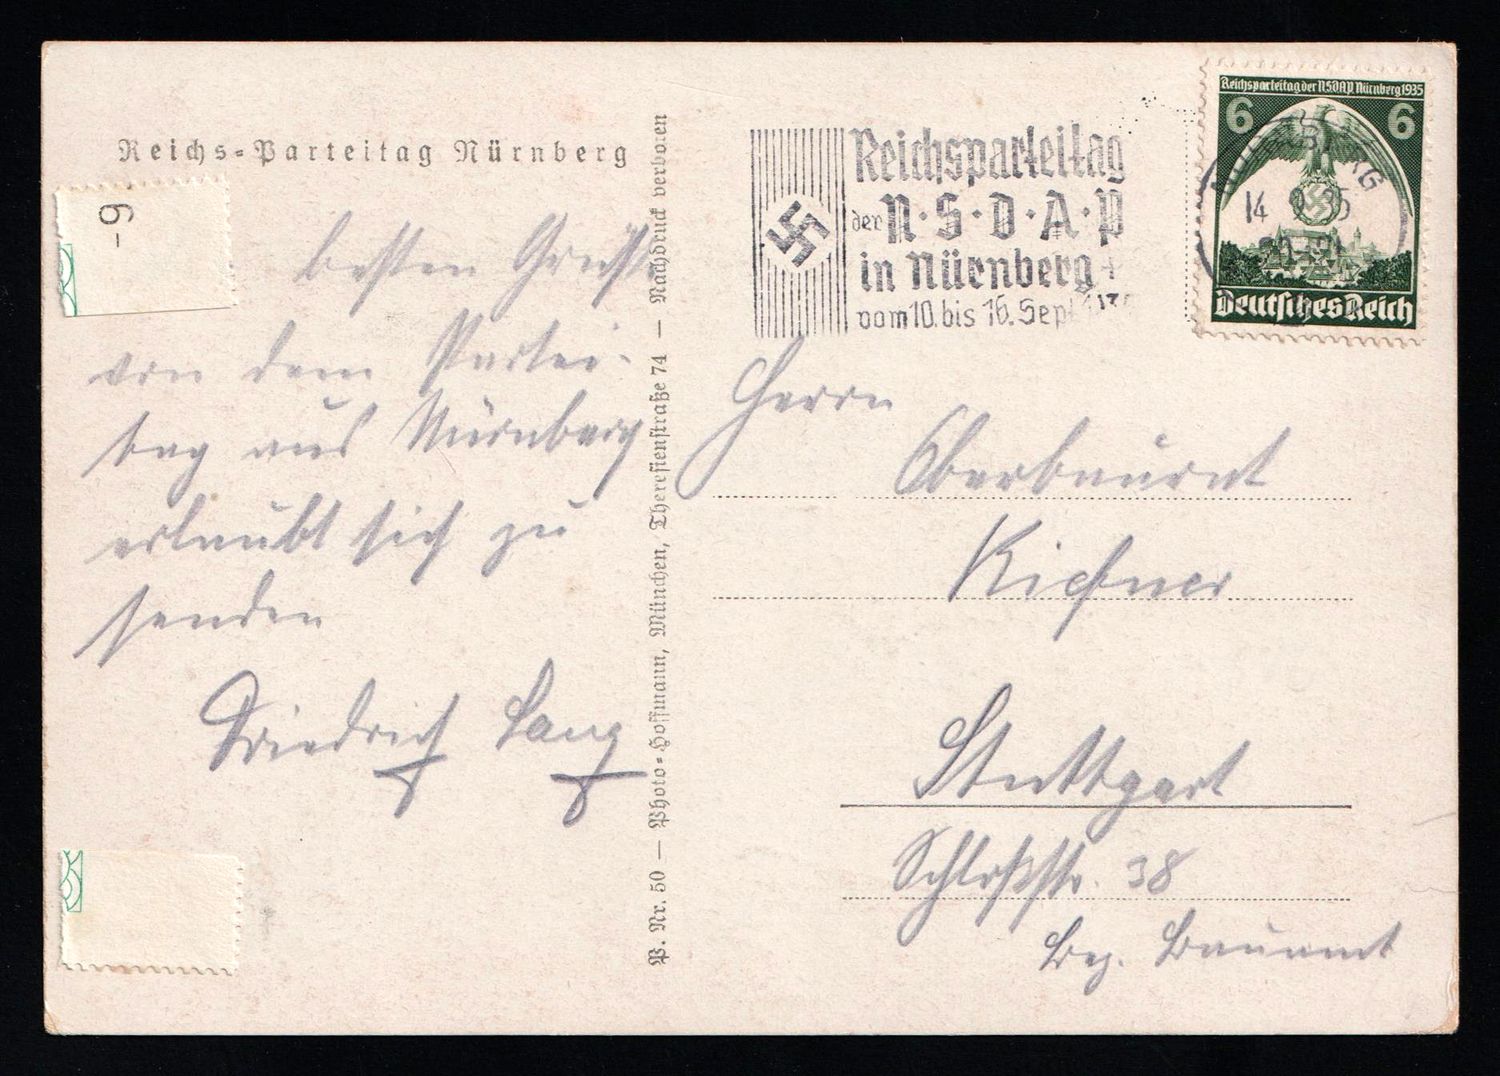 Reichs-Parteitag Nürnberg
-6
besten Grüße
von dem Partei-
tag aus Nürnberg
erlaubt sich zu
senden
Friedrich Lang
P. Nr. 50 — Photo-Hoffmann, München, Theresienstraße 74 — Nachdruck verboten
Reichsparteitag
der N·S·D·A·P
in Nürnberg
vom 10. bis 16. Sept.
14 9 35
Reichsparteitag der NSDAP Nürnberg 1935
6 6
Deutsches Reich
Herrn
Oberbaurat
Stuttgart
Schloßstr. 38
Bez. Bauamt